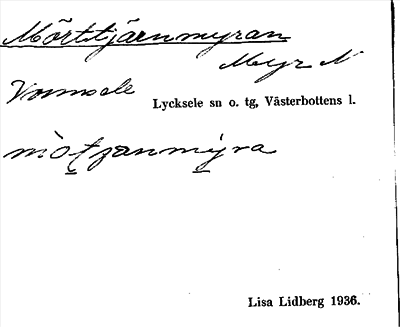 Mörttjärnmyran
Myr N
Vormsele
Lycksele sn o. tg, Västerbottens l.
mòtjanmýra
Lisa Lidberg 1936.